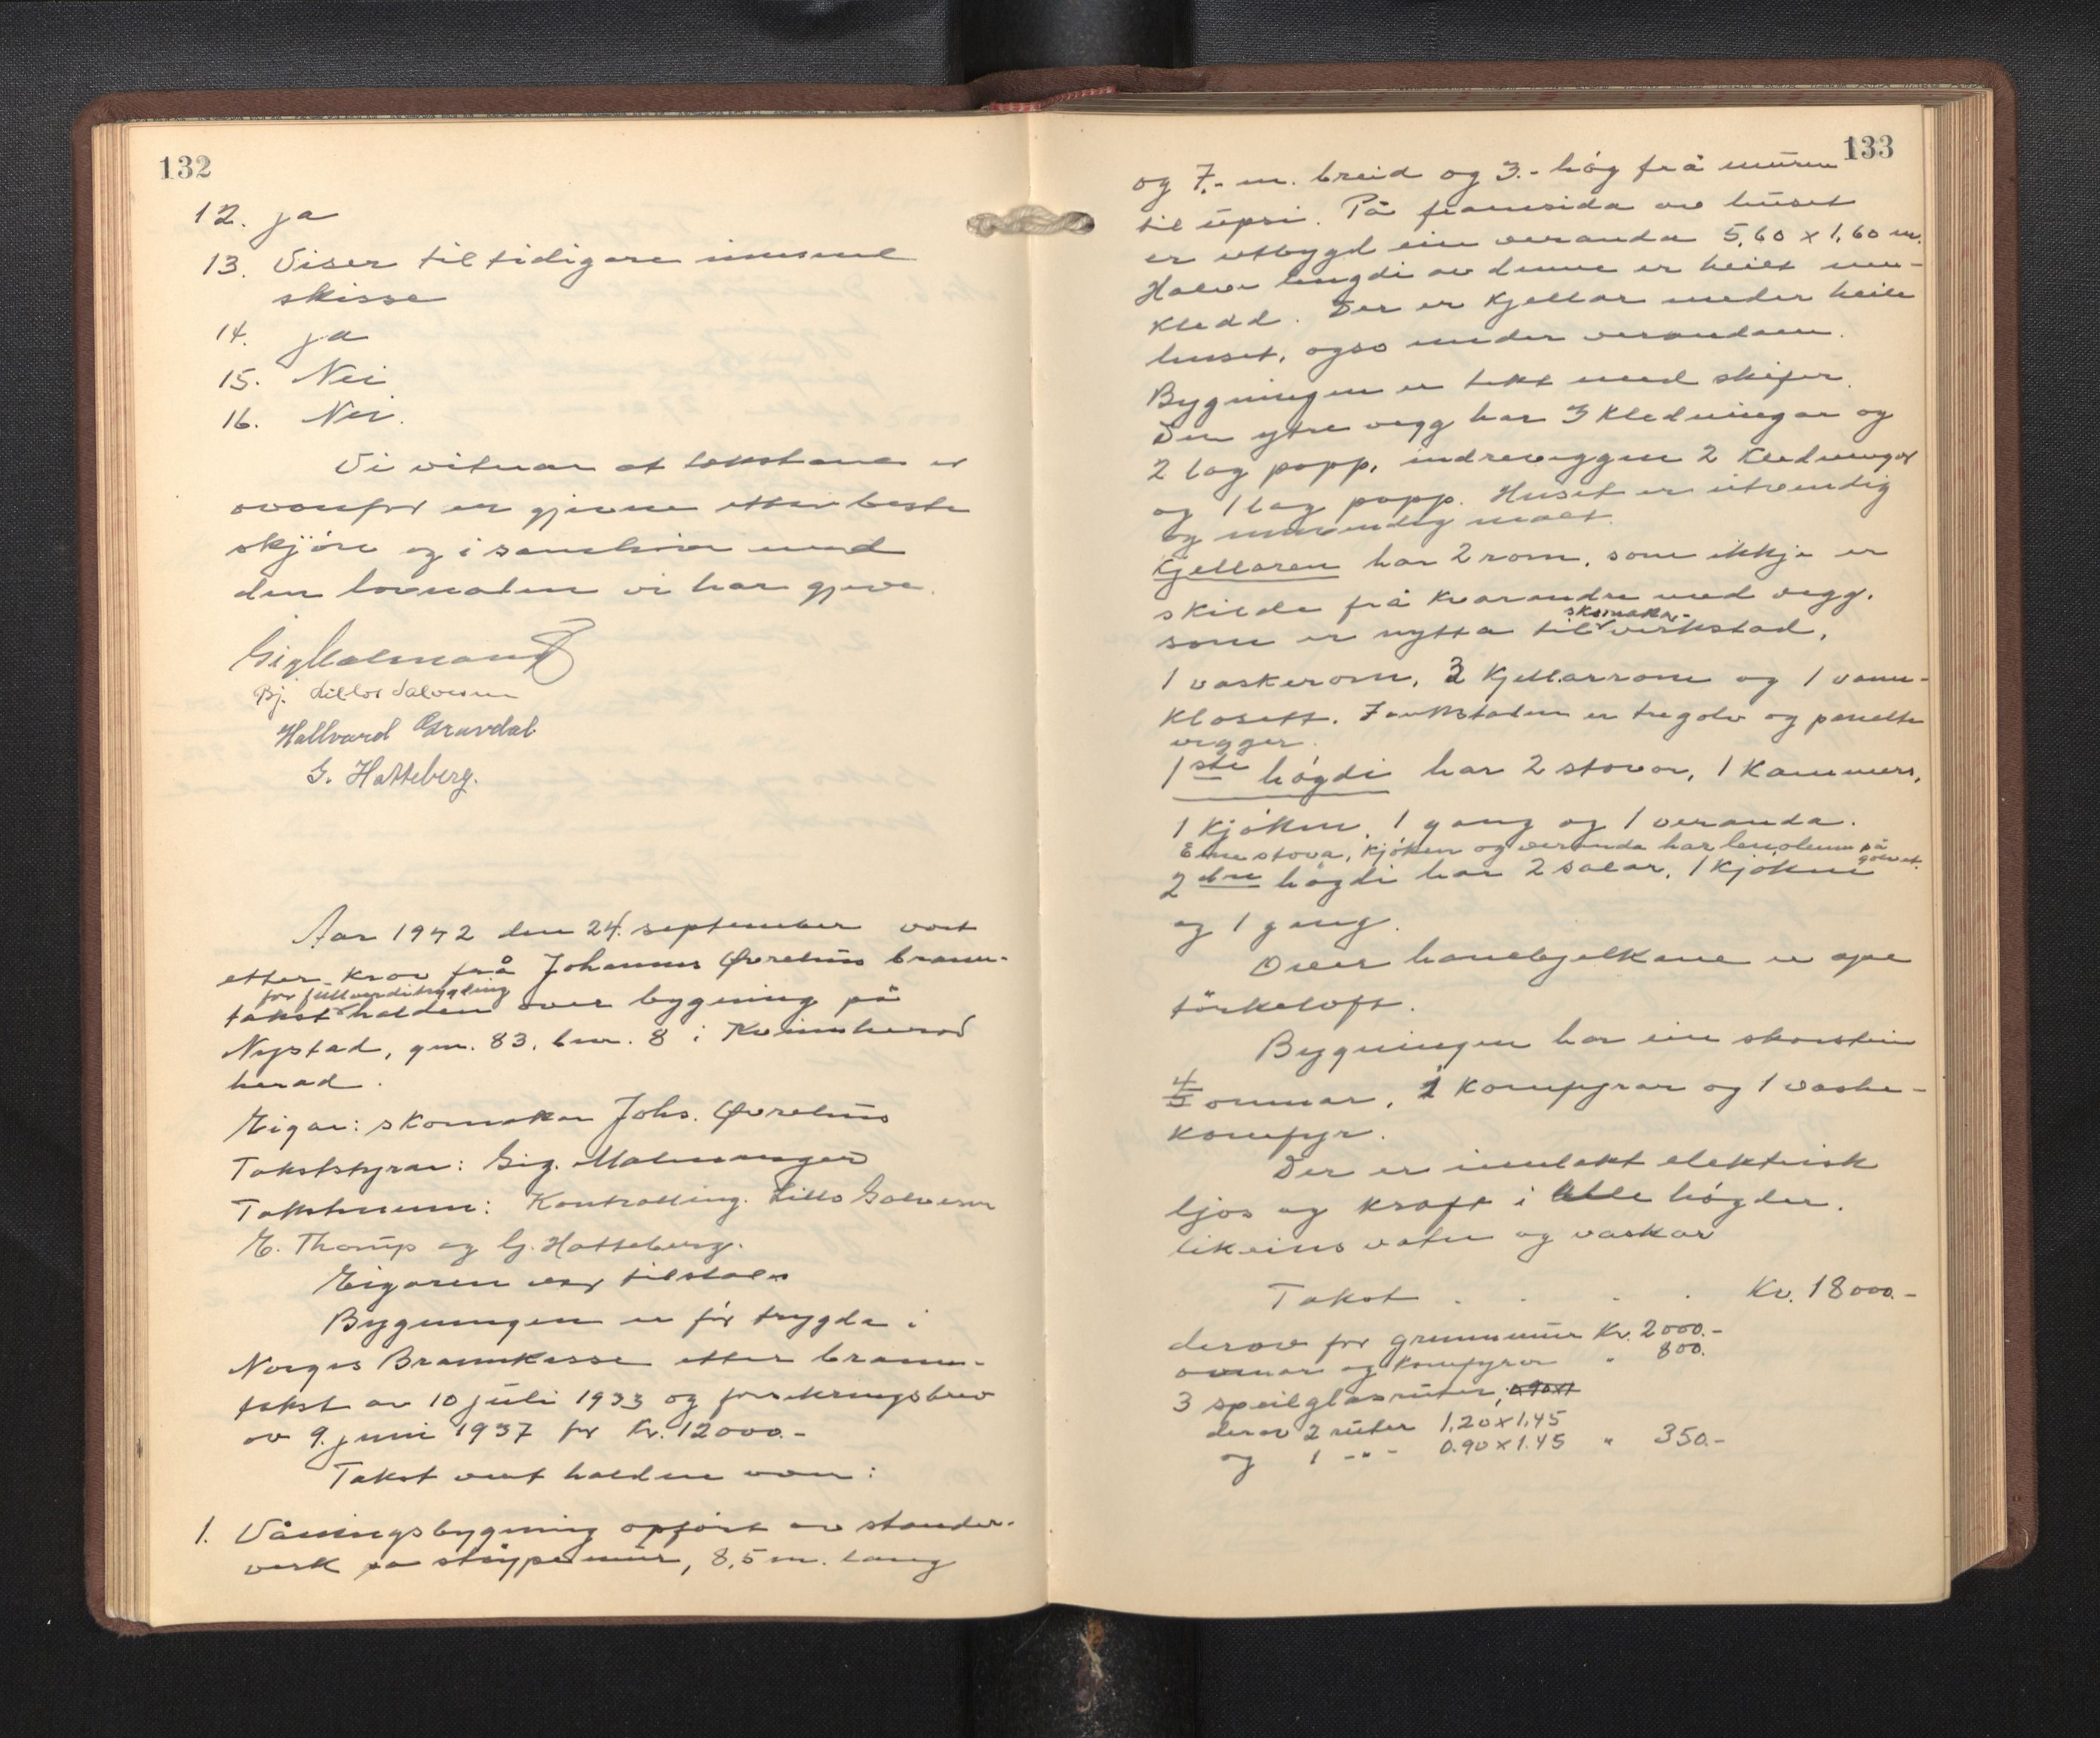 132
12. ja
13. Viser til tidigare innsend
skisse
14. ja
15. Nei
16. Nei.
Vi vitnar at takstane er
ovanfor er gjevne etter beste
skjön og i samhøve med
den lovnaden vi har gjeve.
Sig Malmanger
Bj. Lillos Salvesen
Hallvard Gravdal
G. Hatteberg.
Aar 1942 den 24. september vart
etter krav frå Johannes Øvrehus brann-
for fullverditrygding
takst halden over bygning på
Nystad, gnr. 83, bnr. 8 i Kvinnherad
herad.
Eigar: skomakar Johs. Øvrehus
Takststyrar: Sig. Malmanger
Takstmenn: Kontrolling. Lillo Salvesen
E. Thorup og G. Hatteberg.
Eigaren var tilstades
Bygningen er för trygda i
Norges Brannkasse etter brann-
takst av 10 juli 1933 og forsikringsbrev
av 9. juni 1937 for Kr. 12000.-
Takst vert halden over:
1. Våningsbygning opfört av stander-
verk på stöypemur, 8,5 m. lang
133
og 7,- m. breid og 3.- hög frå muren
til upsi. På framsida av huset
er utbygd ein veranda 5,60 x 1,60 m.
Halve lengdi av denne er heilt inn-
kledd. Der er kjellar under heile
huset, også under verandaen.
Bygningen er tekt med skifer.
Den ytre vegg har 3 kledningar og
2 lag papp, indreveggen 2 kledningar
og 1 lag papp. Huset er utvendig
og innvendig malt.
Kjellaren har 2 rom, som ikkje er
skilde frå kvarandre med vegg,
skomakar-
som er nytta til verkstad,
1 vaskerom, 3 kjellarrom og 1 vann-
klosett. I verkstaden er tregolv og panelte
vegger.
1ste högdi har 2 stovor, 1 kammers,
1 kjöken, 1 gang og 1 veranda.
Eine stova, kjöken og veranda har linoleum på
golvet.
2dre högdi har 2 salar, 1 kjöken
og 1 gang.
Over hanebjelkane er ope
törkeloft.
Bygningen har ein skorstein
4 omnar, 2 komfyrar og 1 vaske-
komfyr.
Der er innlakt elektrisk
ljos og kraft i alle högder.
likeins vatn og vaskar
Takst . . . . Kr. 18000.-
derav for grunnmur Kr. 2000.-
ovnar og komfyrar " 800.
3 speilglasruter, 0,90x1
derav 2 ruter 1,20x1,45
og 1 -"- 0.90x1.45 " 350.-